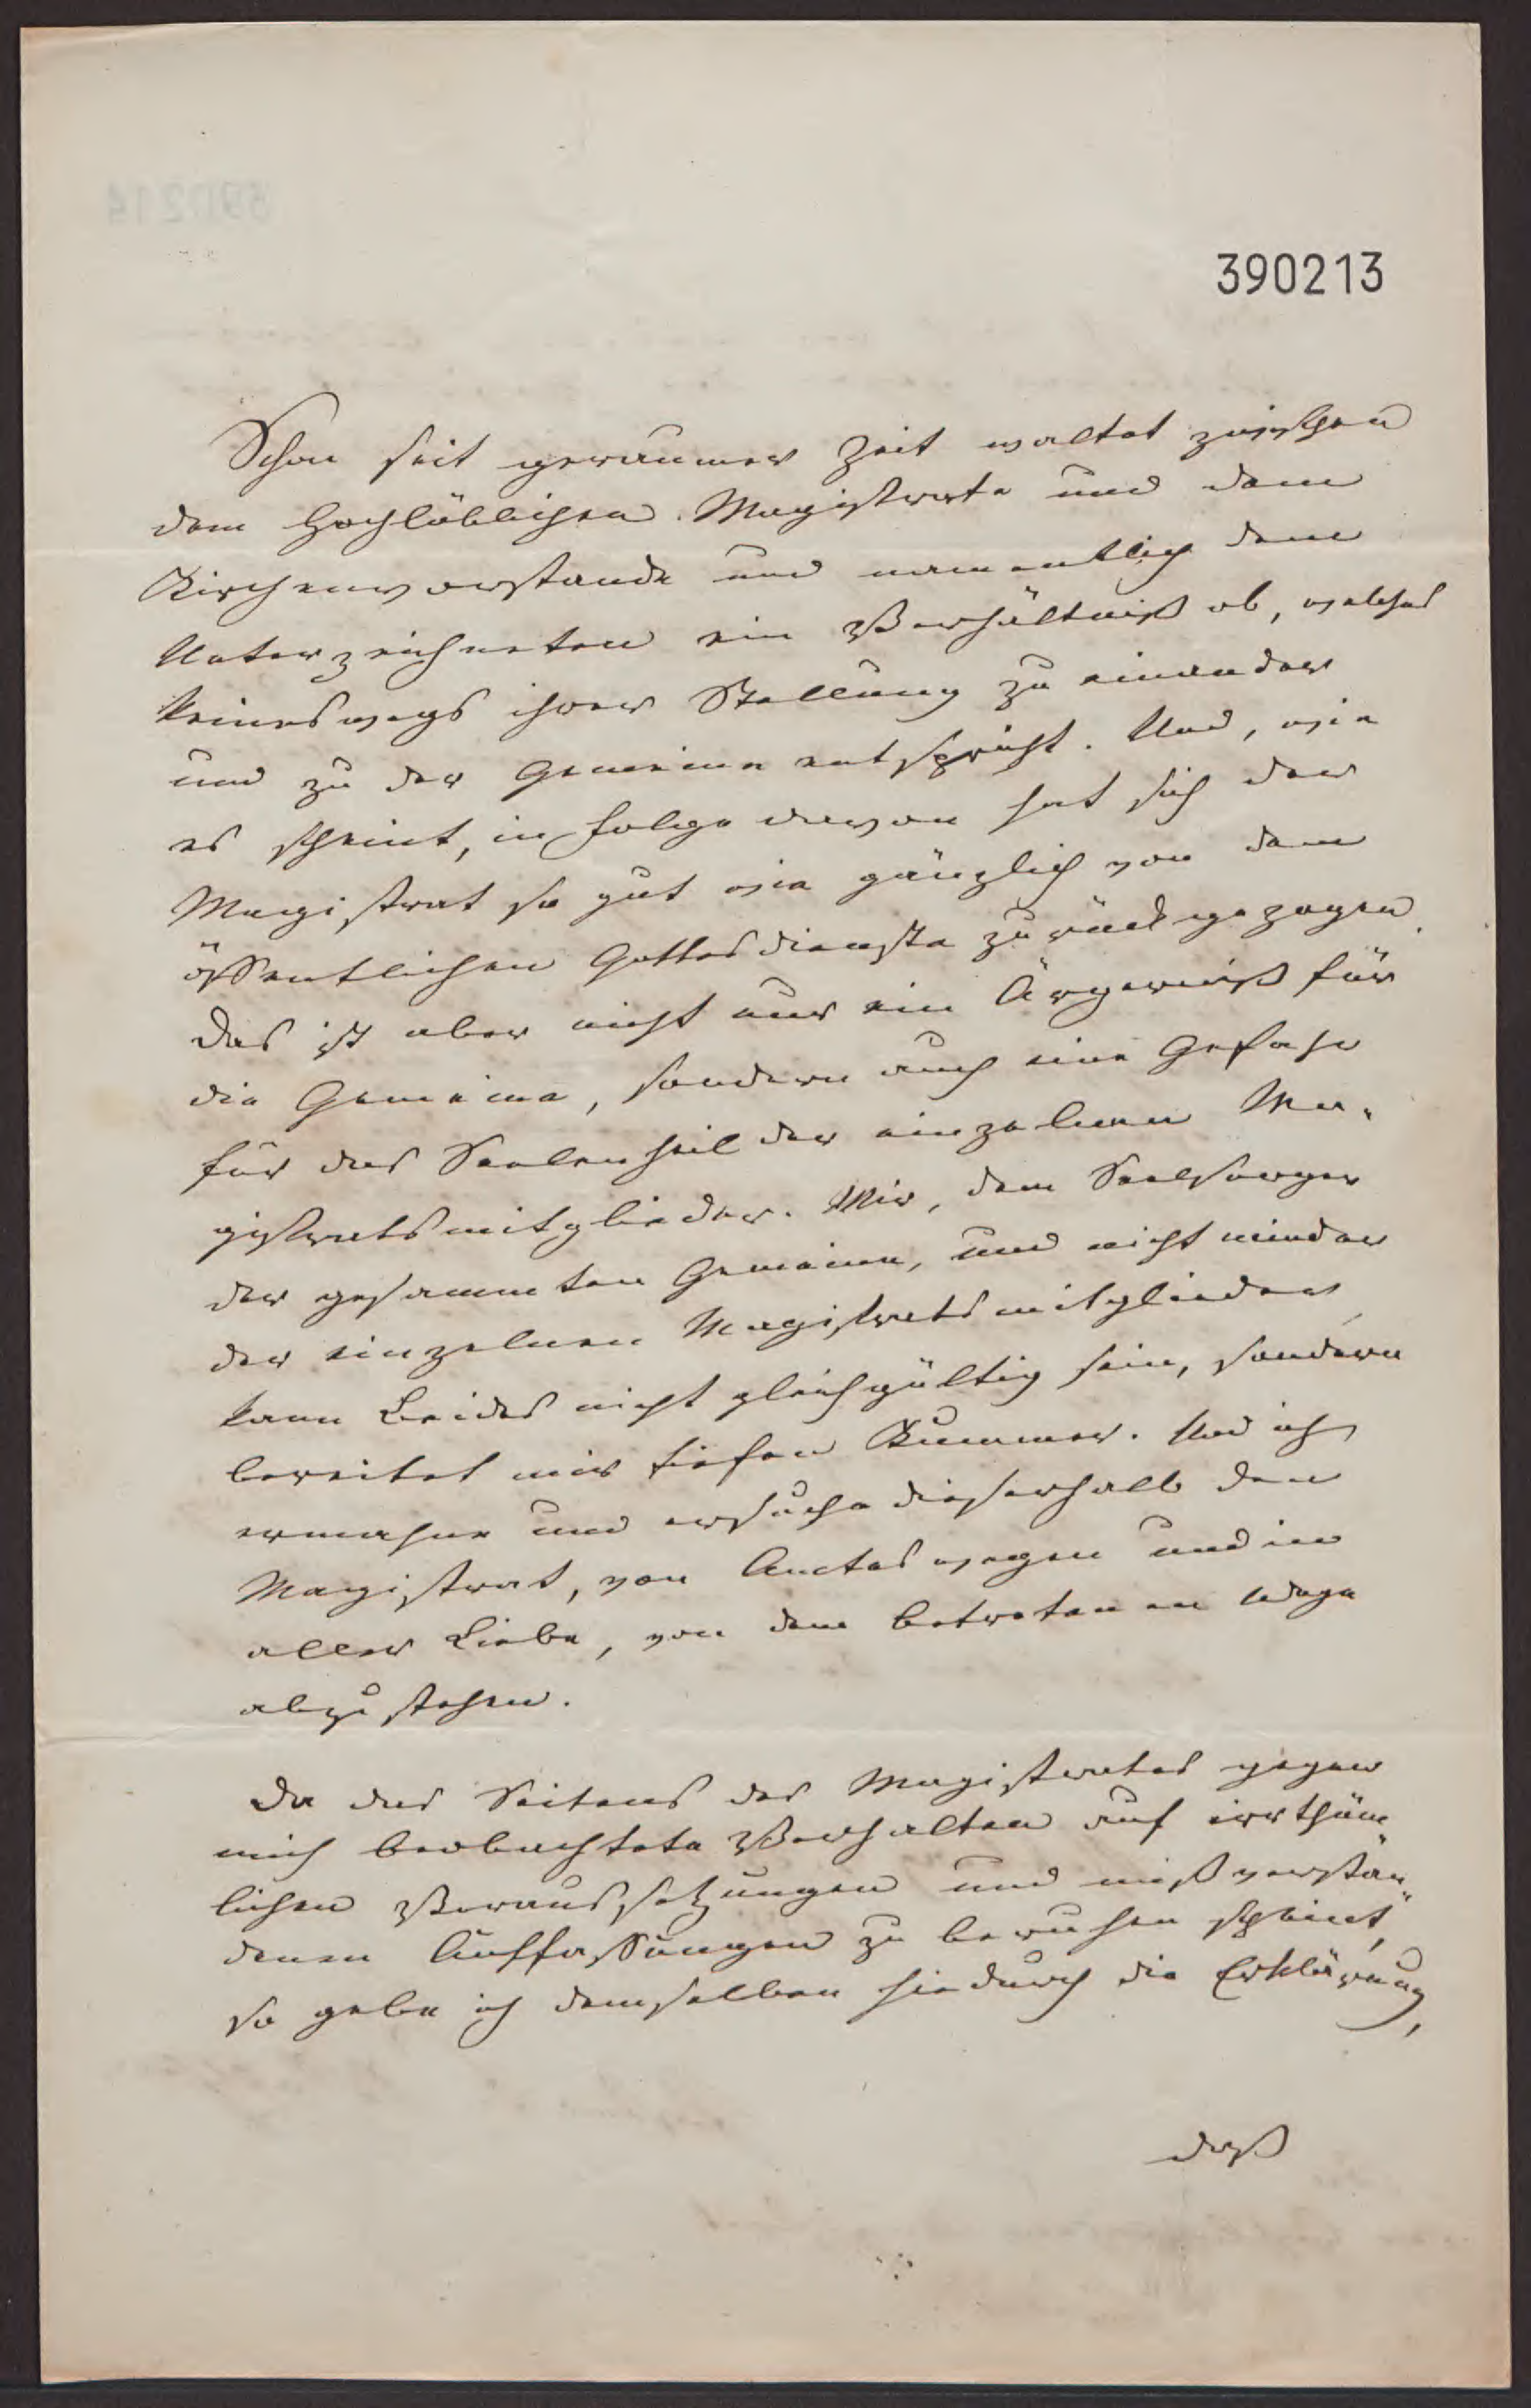 390213
Schon seit geraumer Zeit waltet zwischen
dem Hochlöblichen Magistrate und dem
Kirchenvorstande und namentlich dem
Unterzeichneten ein Verhältniß ob, welches
keineswegs ihrer Stellung zu einander
und zu der Gemeinne entspricht. Und, wie
es scheint, in Folge davon hat sich der
Magistrat so gut wie gänzlich von dem
öffentlichen Gottesdienste zurückgezogen.
Das ist aber nicht nur ein Ärgerniß für
die Gemeine, sondern auch eine Gefahr
für das Seelenheil der einzelnen Ma-
gistratsmitglieder. Mir, dem Seelsorger
der gesammten Gemeine, und nicht minder
der einzelnen Magistratsmitglieder
kann Beides nicht gleichgültig sein, sondern
bereitet mir tiefen Kummer. Und ich
ermahne und ersuche dieserhalb den
Magistrat, von Amtes wegen und in
aller Liebe, von dem betretenen Wege
abzustehen.
Da das Seitens des Magistrates gegen
mich beobachtete Verhalten auf irrthüm
lichen Voraussetzungen und mißverstan-
denen Auffassungen zu beruhen scheint,
so gebe ich demselben hiedurch die Erklärung,
daß